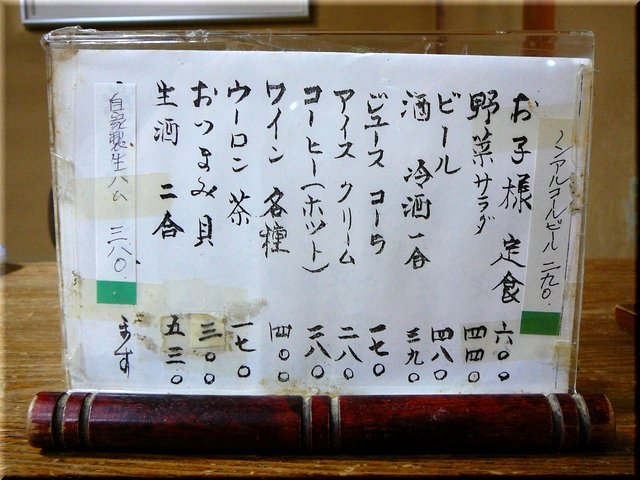 ノンアルコールビール 二九〇.
お子様 定食 六〇〇
野菜サラダ 四四〇
ビール 四八〇
酒 冷酒一合 三九〇
ジュース コーラ 一七〇
アイスクリーム 二八〇
コーヒー(ホット) 二八〇
ワイン 各種 四〇〇
ウーロン茶 一七〇
おつまみ貝 三〇〇
生酒 二合 五三〇
自家製生ハム 三八〇.
ます